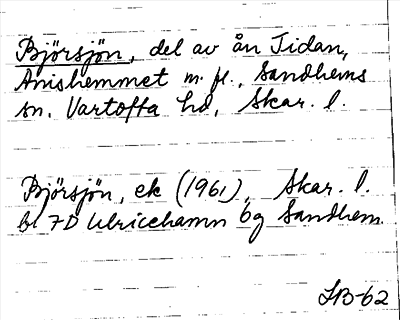 Björsjön, del av ån Tidan,
Anishemmet m. fl., Sandhems
sn. Vartofta hd, Skar. l.
Björsjön, ek (1961), Skar. l.
bl 7D Ulricehamn 6g Sandhem.
SB-62